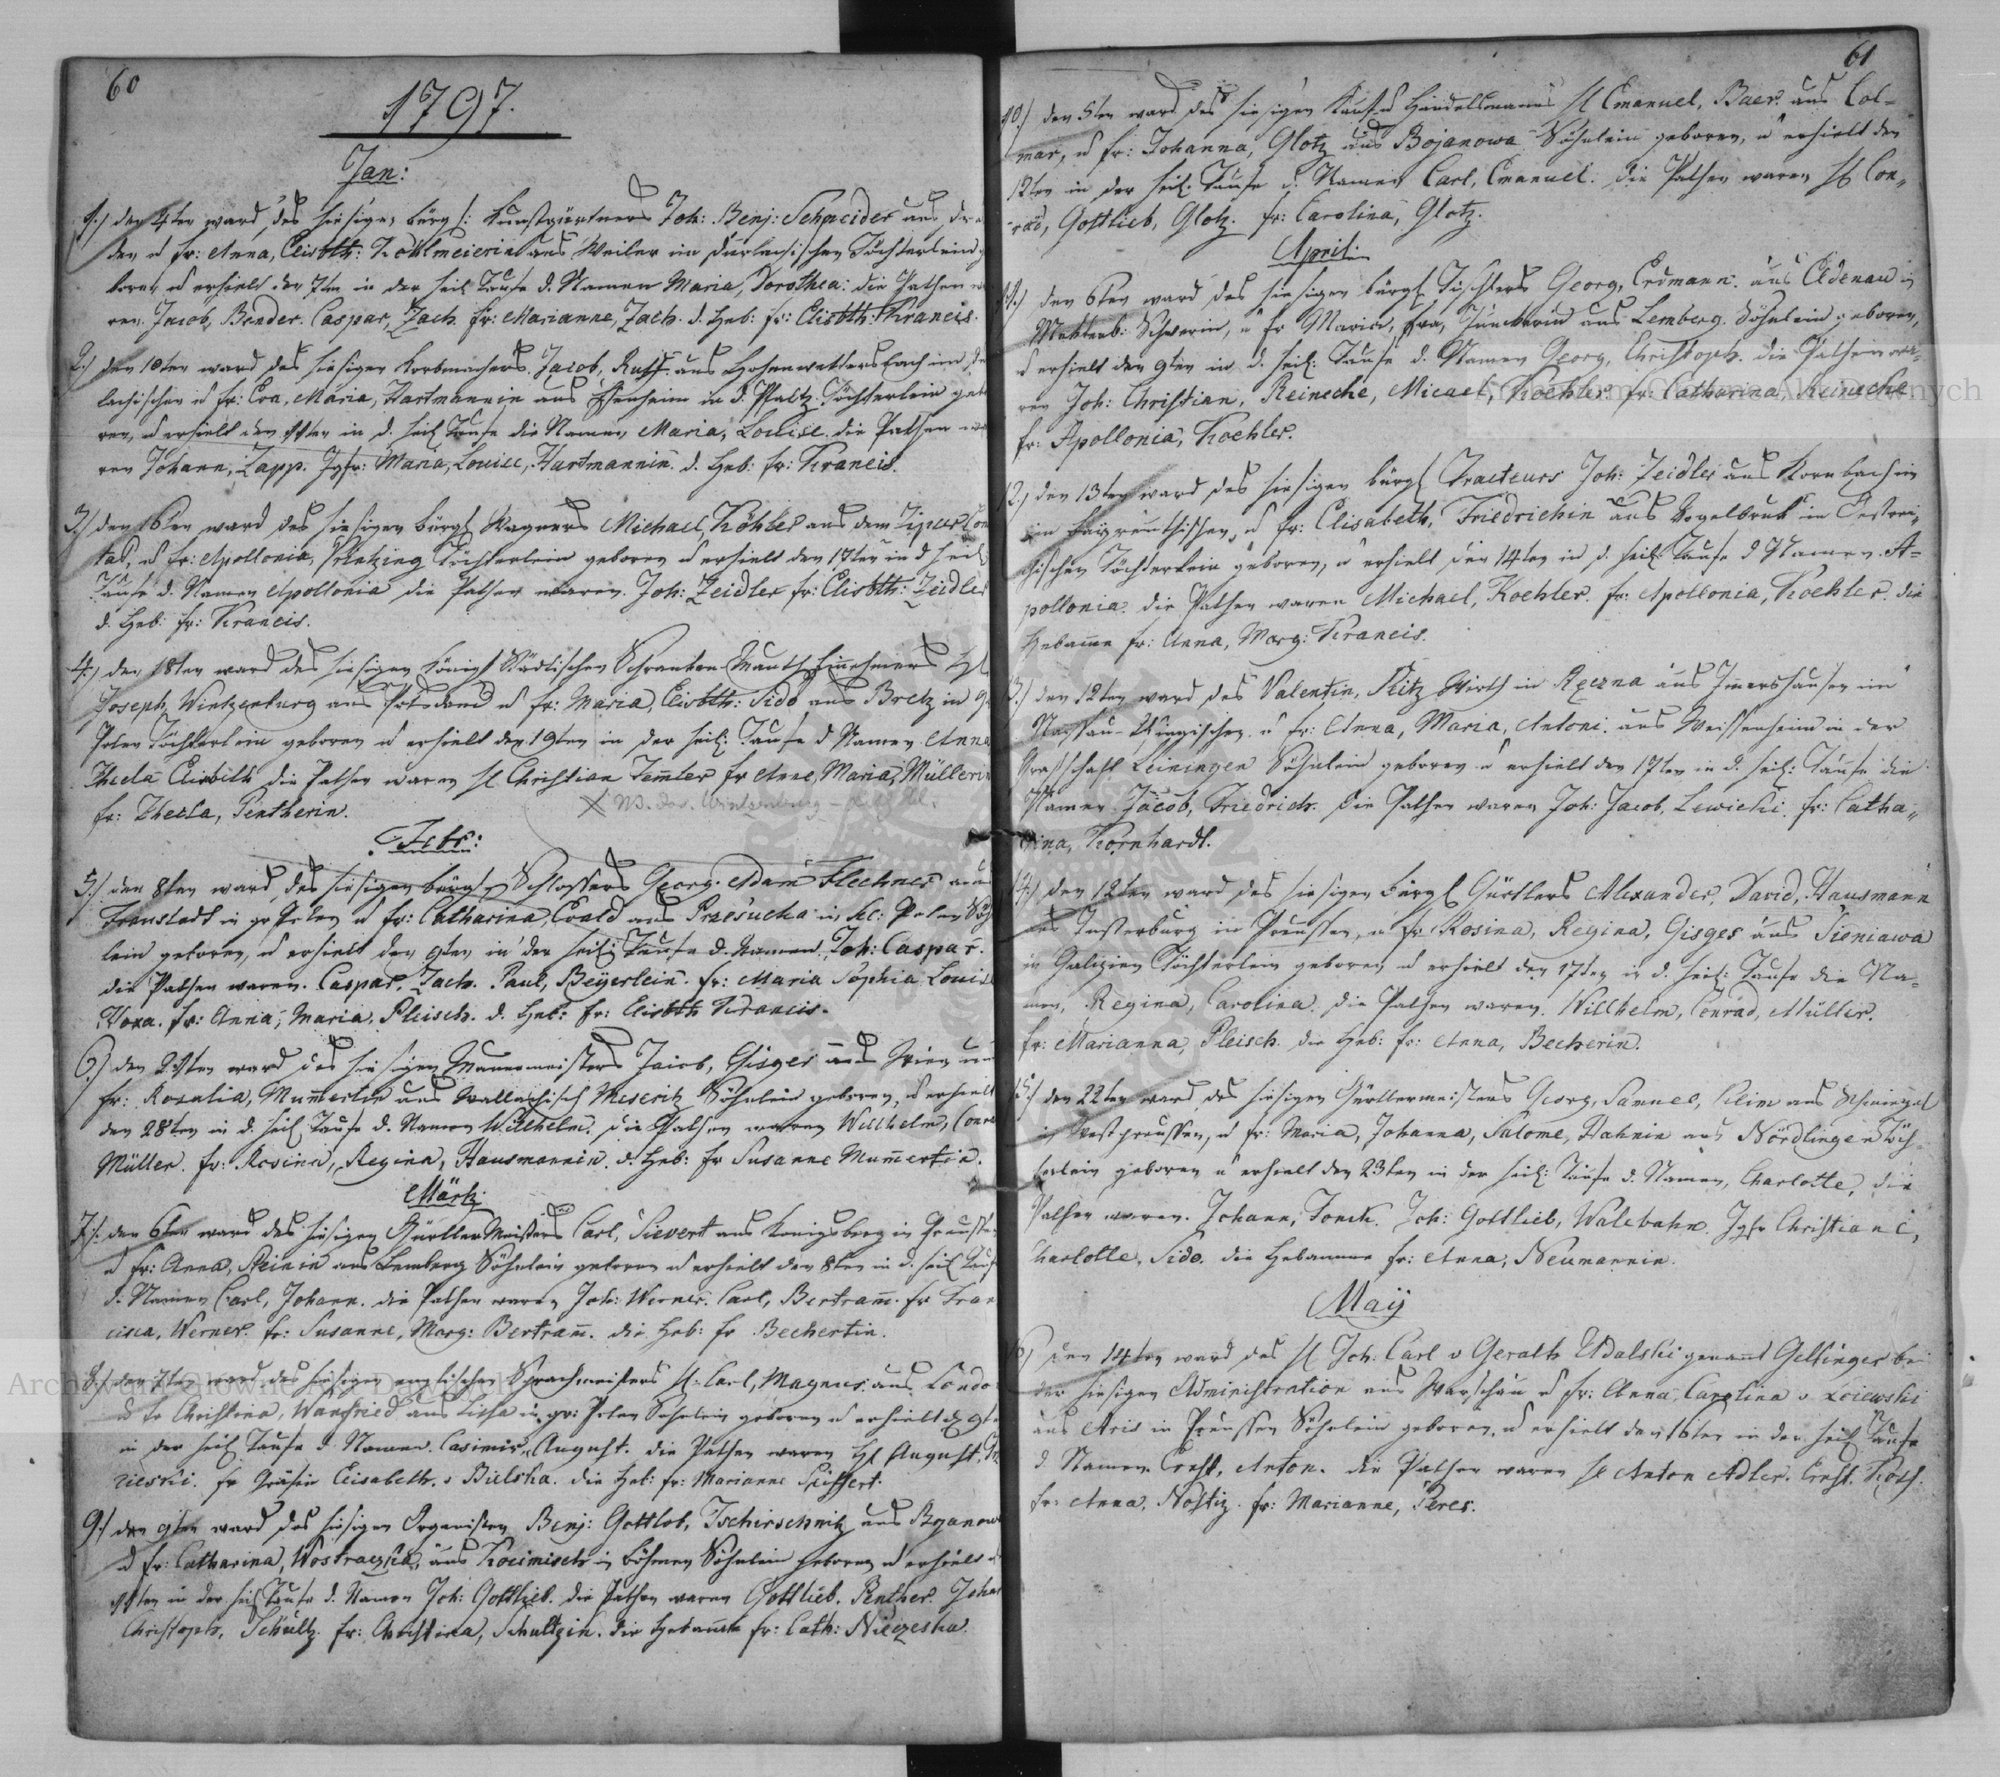 60
1797.
Jan:
1./ den 4ten ward, des hiesigen bürgl: Kunstgärtners Joh: Benj: Schneider aus
den u fr: Anna, Elisbth: Kohlmeierin aus Weiler im Durlachischen Töchterlein
boren u erhielt den 7ten in der heil Taufe d. Namen Maria, Dorothea: die Pathen
ren. Jacob, Bender. Caspar, Zach. fr: Marianne, Zach. d. Heb: fr: Elisbth: Krancis.
2./ den 10ten ward des hiesigen Korbmachers, Jacob, Ruff. aus Hohenwettersbach im
lachischen u fr: Eva, Maria, Hartmannin aus in d. Pfaltz Töchterlein
ren, u erhielt den 11ten in d. heil Taufe die Namen Maria, Louise. die Pathen
ren Johann, Zapp. Jgfr: Maria, Louise, Hartmannin. d. Heb: fr: Krancis.
3./ den 16ten ward des hiesigen bürgl Wagners Michael, Köhler aus dem Zipser
tat, u fr: Apollonia, Töchterlein geboren u erhielt den 17ten in d heil
Taufe d. Namen Apollonia die Pathen waren. Joh: Zeidler fr: Elisbth: Zeidler
d. Heb: fr: Krancis.
4./ den 18ten ward des hiesigen Königl Städtischen Schranken Mauth Einnehmers
Joseph, Wintzenburg aus Potsdam u fr: Maria, Elisbth: Sido aus Bretz in
Polen Töchterlein geboren u erhielt den 19ten in der heil: Taufe d Namen Anna
Thecla Elisbth die Pathen waren H Christian Temler fr Anne, Maria, Müllerin
fr: Thecla, Pentherin.
Febr:
5./ den 8ten ward, des hiesigen bürgl Schlossers Georg. Adam Flechner aus
Fraustadt in gr Polen u fr: Catharina, Evald aus Przesucha in kl: Polen
lein geboren, u erhielt den 9ten in der heil: Taufe d. Namen. Joh: Caspar.
die Pathen waren. Caspar, Zach. Paul, Beyerlein. fr: Maria Sophia Louise
fr: Anna, Maria, Pleisch. d. Heb: fr: Elisbth Krancis.
6./ den 23ten ward des hiesigen Mauermeisters Jacob, Gisges aus Wien
fr: Rosalia, Mummertin aus Wallachisch Meseritz Söhnlein geboren, u erhielt
den 28ten in d. heil Taufe d. Namen Wilhelm. die Pathen waren Willhelm, Conrad
Müller. fr: Rosina, Regina, Hausmannin. d. Heb: fr Susanne Mummertin.
Märtz
7./ den 6ten ward des hiesigen Gürtler Meisters Carl, Sievert aus Königsberg in Preussen
u fr: Anna, Steinin aus Lemberg Söhnlein geboren u erhielt den 8ten in d. heil Taufe
d. Namen Carl, Johann. die Pathen waren Joh: Werner. Carl, Bertram. fr Fran
cisca, Werner. fr: Susanne, Marg: Bertram. die Heb: fr Bechertin.
8./ den 7ten ward des hiesigen englischen Sprachmeisters H: Carl, Magnus. aus Londo
u fr Christina, Wanfried aus Lissa in gr: Polen Söhnlein geboren u erhielt d 9ten
in der heil Taufe d Namen. Casimir, August. die Pathen waren H August,
zieski. fr Gräfin Elisabeth. v Bielska. die Heb: fr: Marianne
9./ den 9ten ward des hiesigen Organisten Benj: Gottlob, Tschirschnitz aus Bojanow
u fr: Catharina, aus in Böhmen Söhnlein geboren u erhielt
11ten in der heil Taufe d. Namen Joh: Gottlieb. die Pathen waren Gottlieb. Penther. Joha
Christoph, Schultz. fr: Christina, Schultzin. die Hebamme fr: Cath:
61
10./ den 5ten ward des hiesigen Kauf u Handelsmanns H Emanuel, Baer. aus Col-
mar, u fr: Johanna, Glotz aus Bojanowa Söhnlein geboren, u erhielt den
12ten in der heil: Taufe d. Namen Carl, Emanuel. die Pathen waren H Con-
rad, Gottlieb, Glotz. fr: Carolina, Glotz.
April.
den 6ten ward des hiesigen bürgl Tischlers Georg, Erdmann. aus Eldenau in
Meklenb: Schwerin, u fr Maria, Eva, Junckerin aus Lemberg. Söhnlein geboren,
u erhielt den 9ten in d. heil: Taufe d. Namen Georg, Christoph. die Pathen wa-
ren Joh: Christian, Reineche, Micael, Koehler. fr: Catharina, Reineche
fr: Apollonia, Koehler.
12./ den 13ten ward des hiesigen bürgl Tracteurs Joh: Zeidler aus Kornbach im
im Bayreuthischen, u fr: Elisabeth, Friedrichin aus Vogelbruk in Oestrei-
chischen Töchterlein geboren, u erhielt den 14ten in d. heil: Taufe d Namen. A-
pollonia. die Pathen waren Michael, Koehler. fr: Apollonia, Koehler. die
Hebamme fr: Anna, Marg: Krancis.
den 12ten ward des Valentin, Wirth in aus im
Nassau- u fr: Anna, Maria, Antoni. aus Weissenheim in der
Grafschaft Leiningen Söhnlein geboren u erhielt den 17ten in d. heil: Taufe die
Namen Jacob, Friedrich. die Pathen waren Joh: Jacob, Lewicki. fr: Catha-
rina, Kornhardt.
den 12ten ward des hiesigen bürgl Gürtlers Alexander, David, Hausmann
aus Insterburg in Preussen, u fr: Rosina, Regina, Gisges aus Sieniawa
in Galizien Töchterlein geboren u erhielt den 17ten in d. heil: Taufe die Na-
men, Regina, Carolina. die Pathen waren. Willhelm, Conrad, Müller.
fr: Marianna, Pleisch. die Heb: fr: Anna, Becherin.
den 22ten ward des hiesigen Gürtlermeisters Georg, Samuel, aus
in Westpreussen, u fr: Maria, Johanna, Salome, Hahnin aus Nördlingen Töch-
terlein geboren u erhielt den 23ten in der heil: Taufe d. Namen, Charlotte, die
Pathen waren. Johann, Joh: Gottlieb, Jgfr Christiane,
Charlotte, Sido. die Hebamme fr: Anna, Neumannin.
May
den 14ten ward des H Joh: Carl v Geralth Udalski genannt Gelfinger bei
der hiesigen Administration aus Warschau u fr: Anna, Carolina v
aus Aris in Preussen Söhnlein geboren, u erhielt den 16ten in der heil Taufe
d Namen. Ernst, Anton. die Pathen waren H Anton Adler. Ernst,
fr: Anna, Nostiz. fr: Marianne, Peres.